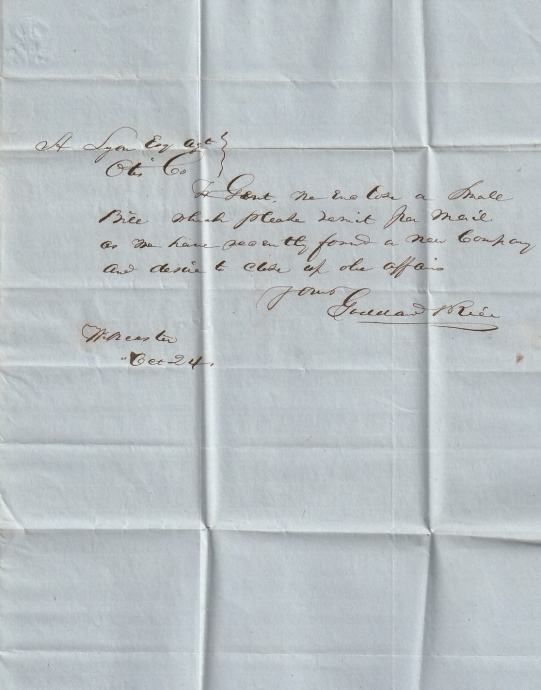 A Lyon Esq Agt
Otis Co
Gent. we enclose a small
Bill which please remit per mail
as we have recently found a new Company
and desire to close up old affairs
Yours
Goddard & Rice
Worcester
Oct 24.